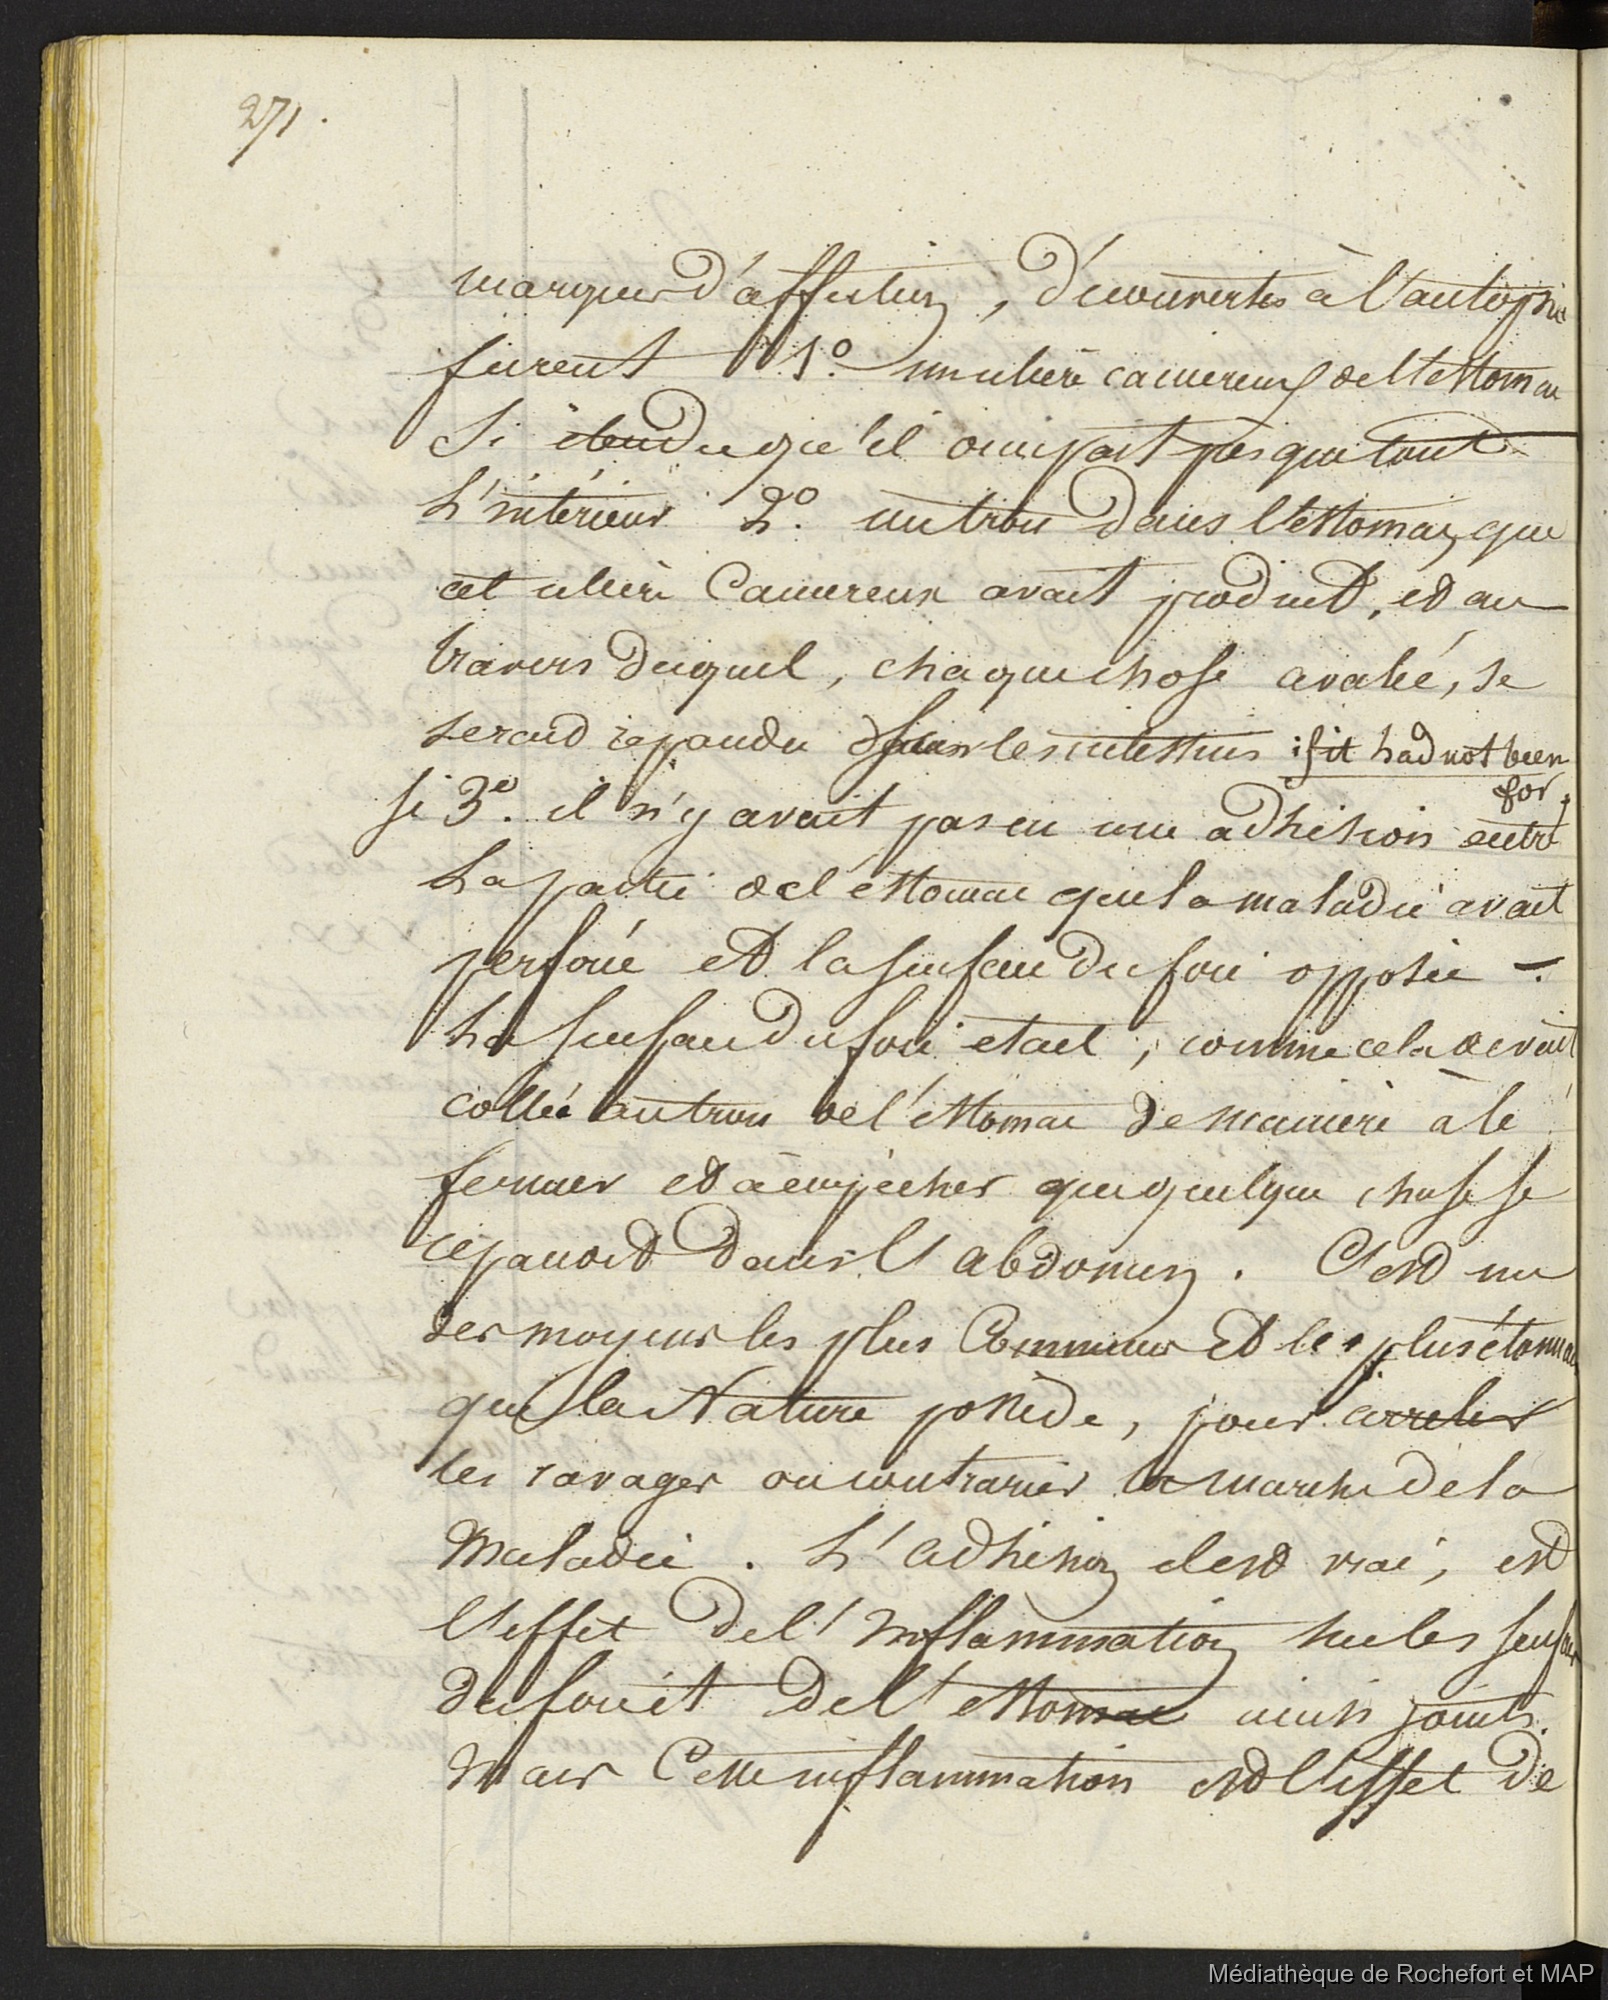 271.
marques d'affection, découvertes à l'autopsie
furent 1º. un ulcère cancereux de l'estomac
si étendu qu'il occupait presque tout
L'intérieur 2º. un trou dans l'estomac, que
cet ulcère Cancereux avait produit, et au
travers duquel, chaque chose avalée, se
serait répandu dans les intestins if it had not been
for
si 3º. il n'y avait pas eu une adhésion entre
La partie de l'éstomac que la maladie avait
perforée et la surface du foie opposée -.
La surface du foie etait, comme cela devait
collée au trou de l'éstomac de manière à le
fermer et à empêcher que quelque chose se
répandit dans l'abdomen. C'est un
des moyens les plus Communs et les plus étonnan
que la Nature possède, pour arreter
les ravages ou contrarier la marche de la
Maladie. L'adhésion, il est vrai, est
l'effet de l'Inflammation sur les surfaces
du foie et de l'estomac ainsi joints.
Mais Cette inflammation est l'effet de
Médiathèque de Rochefort et MAP